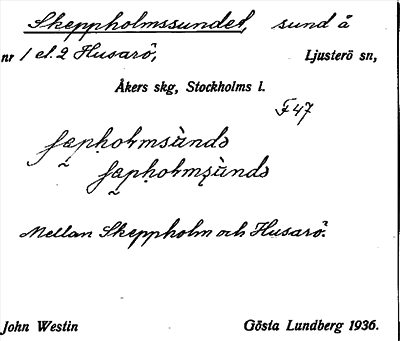 Skeppholmssundet, sund å
nr 1 el. 2 Husarö, Ljusterö sn,
Åkers skg, Stockholms l.
F 47
Mellan Skeppholm och Husarö.
John Westin Gösta Lundberg 1936.